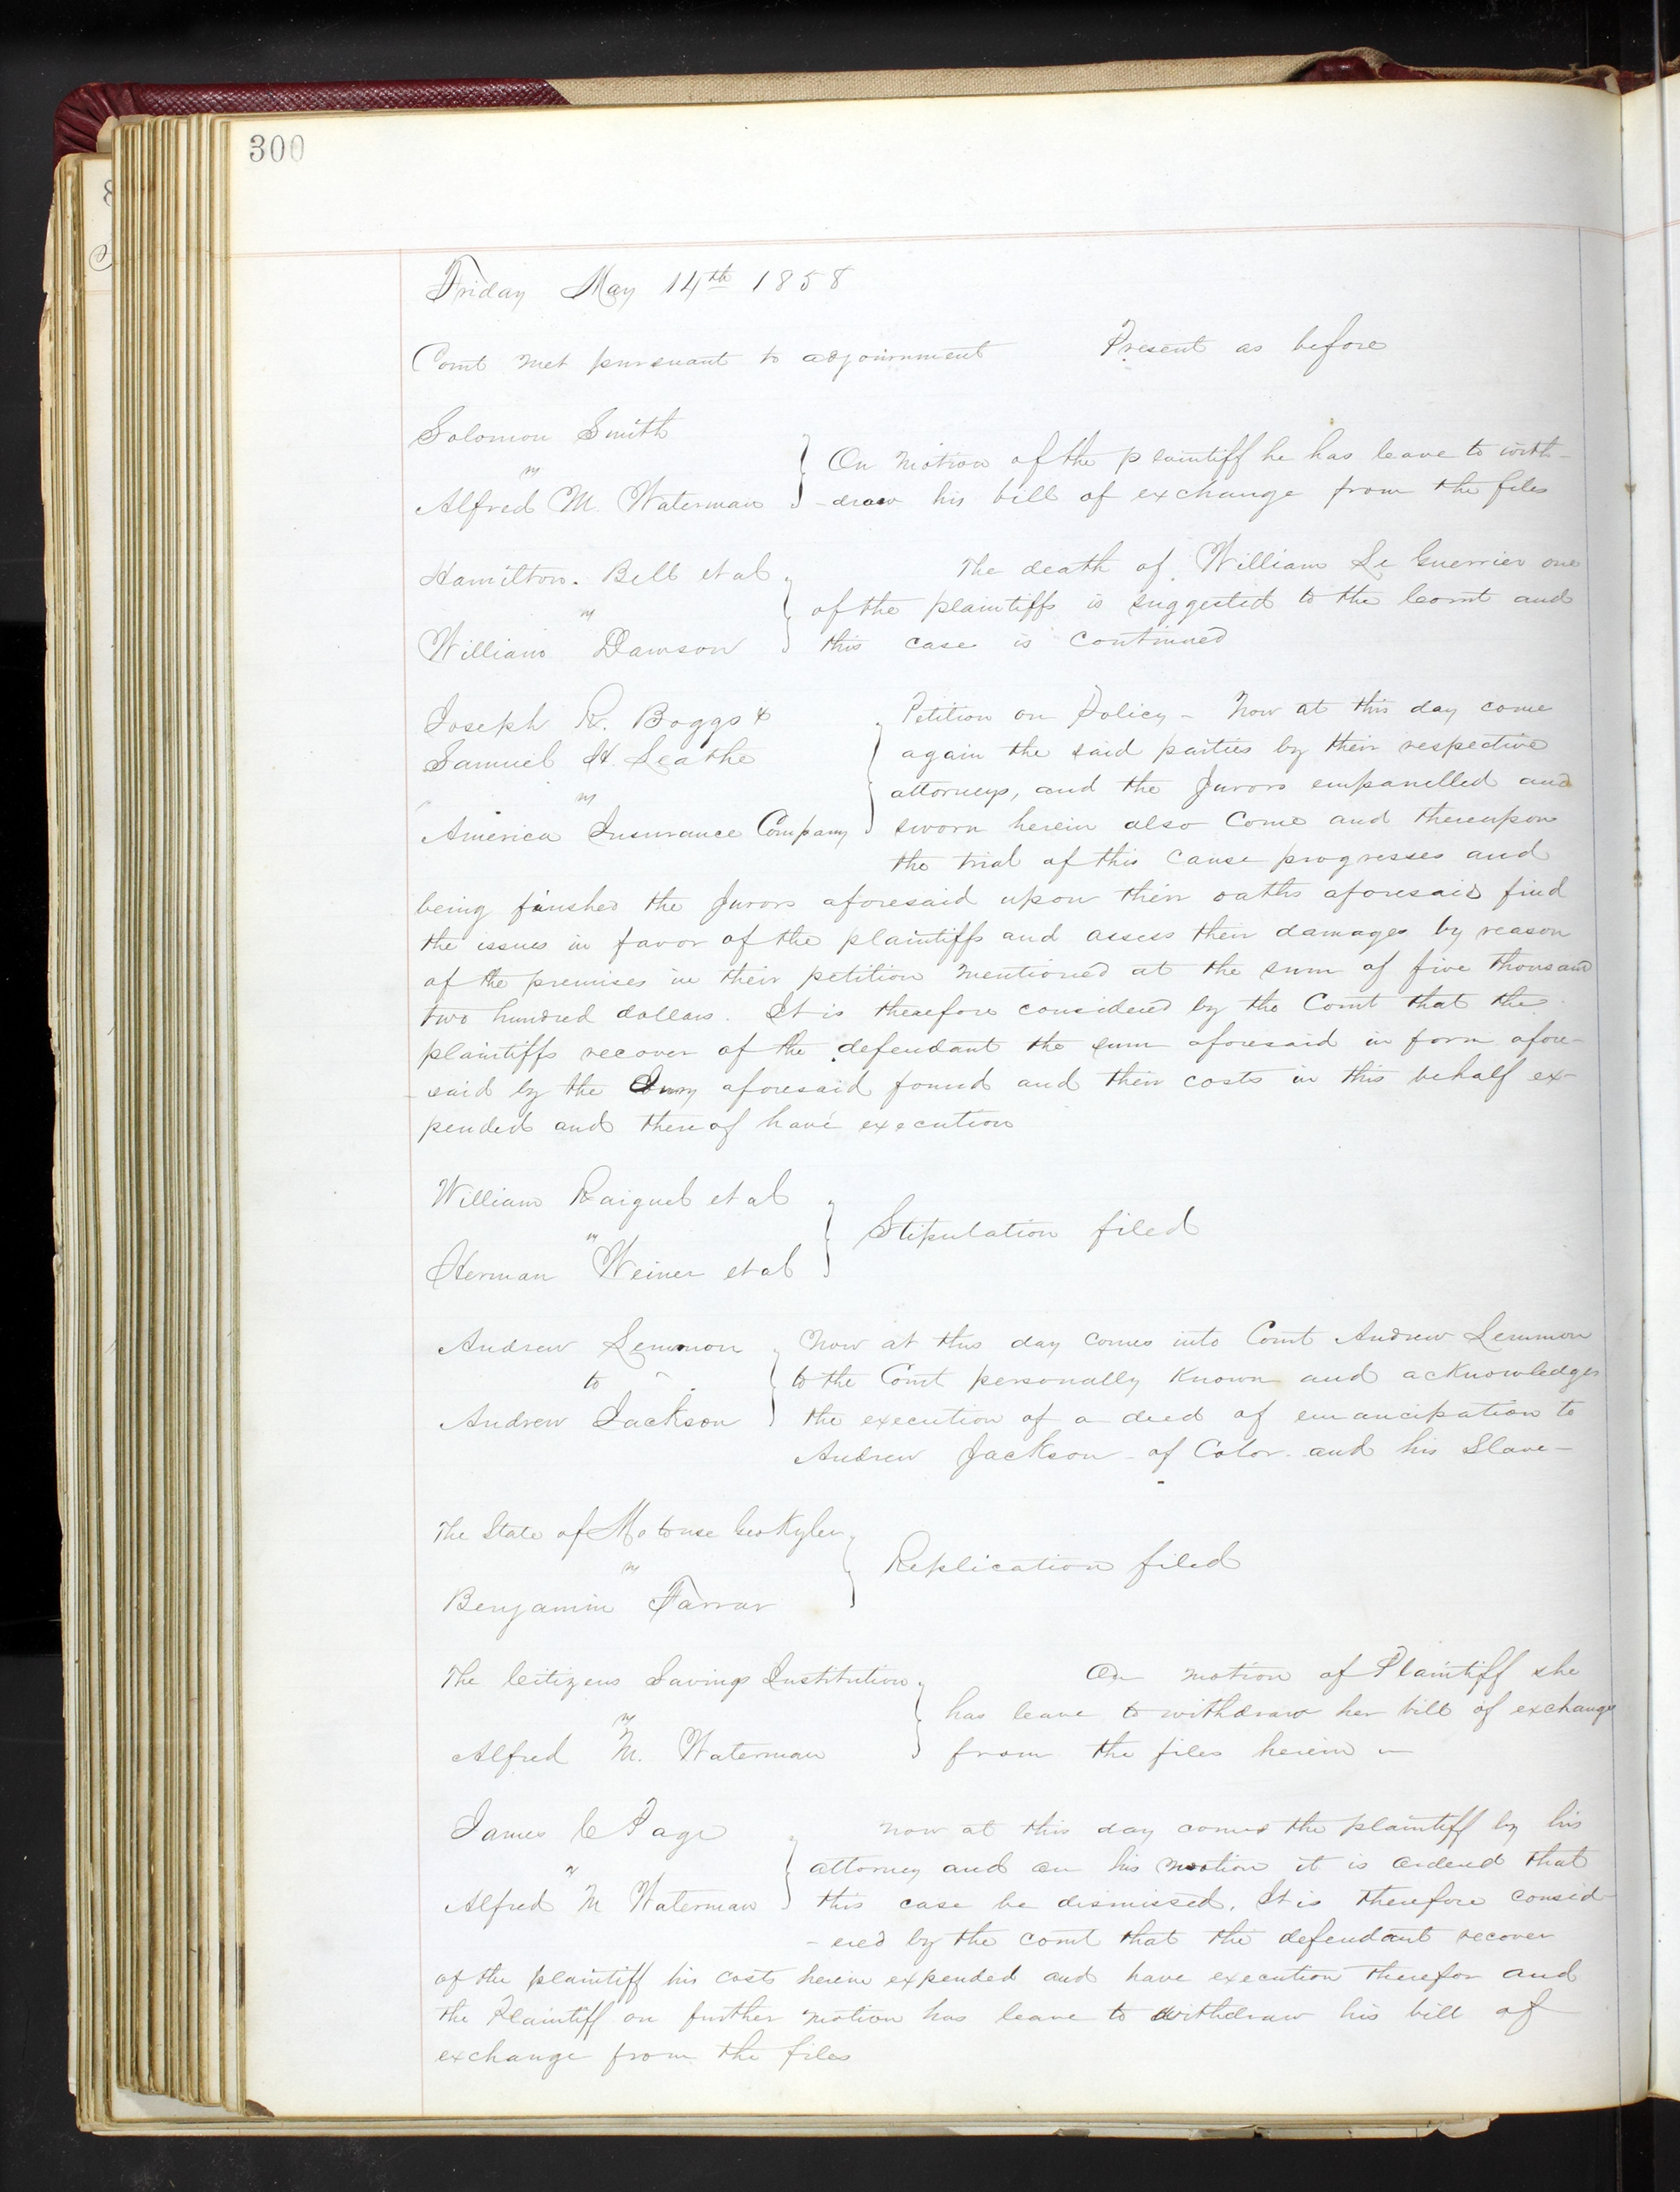 300
Friday May 14th 1858
Court met pursuant to adjournment Present as before
Solomon Smith
vs
Alfred M. Waterman
On motion of the plaintiff he has leave to with-
-draw his bill of exchange from the files
Hamilton. Bell et al
vs
William Dawson
The death of William Le Guerrier one
of the plaintiffs is suggested to the Court and
this case is continued
Joseph R. Boggs &
Samuel H. Leathe
vs
America Insurance Company
Petition on Policy - Now at this day come
again the said parties by their respective
attorneys, and the Jurors empanelled and
sworn herein also Come and thereupon
the trial of this cause progresses and
being finished the Jurors aforesaid upon their oaths aforesaid find
the issues in favor of the plaintiffs and assess their damages by reason
of the premises in their petition mentioned at the sum of five thousand
two hundred dollars. It is therefore considered by the Court that the
plaintiffs recover of the defendant the sum aforesaid in form afore-
-said by the Jury aforesaid found and their costs in this behalf ex-
pended and thereof have execution
William Raiguel et al
vs
Herman Weiner et al
Stipulation filed
Andrew Lemmon
to
Andrew Jackson
Now at this day comes into Court Andrew Lemmon
to the Court personally Known and acknowledges
the execution of a deed of emancipation to
Andrew Jackson - of Color - and his Slave -
The State of Mo to use Geo Kyler
vs
Benjamin Farrar
Replication filed
The Citizens Savings Institution
vs
Alfred M. Waterman
On motion of Plaintiff she
has leave to withdraw her bill of exchange
from the files herein -
James C Page
vs
Alfred M Waterman
Now at this day comes the plaintiff by his
attorney and on his motion it is ordered that
this case be dismissed. It is therefore consid-
-ered by the court that the defendant recover
of the plaintiff his costs herein expended and have execution therefor and
the Plaintiff on further motion has leave to withdraw his bill of
exchange from the files